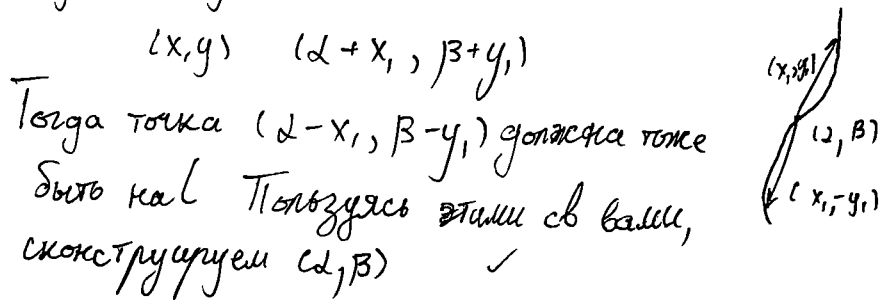 (x, y) (α + x₁, β + y₁)
Тогда точка (α - x₁, β - y₁) должна тоже
быть на Пользуясь этими св вами,
сконструируем (α, β) ✓
(x₁, y₁)
(α, β)
(x₁, -y₁)